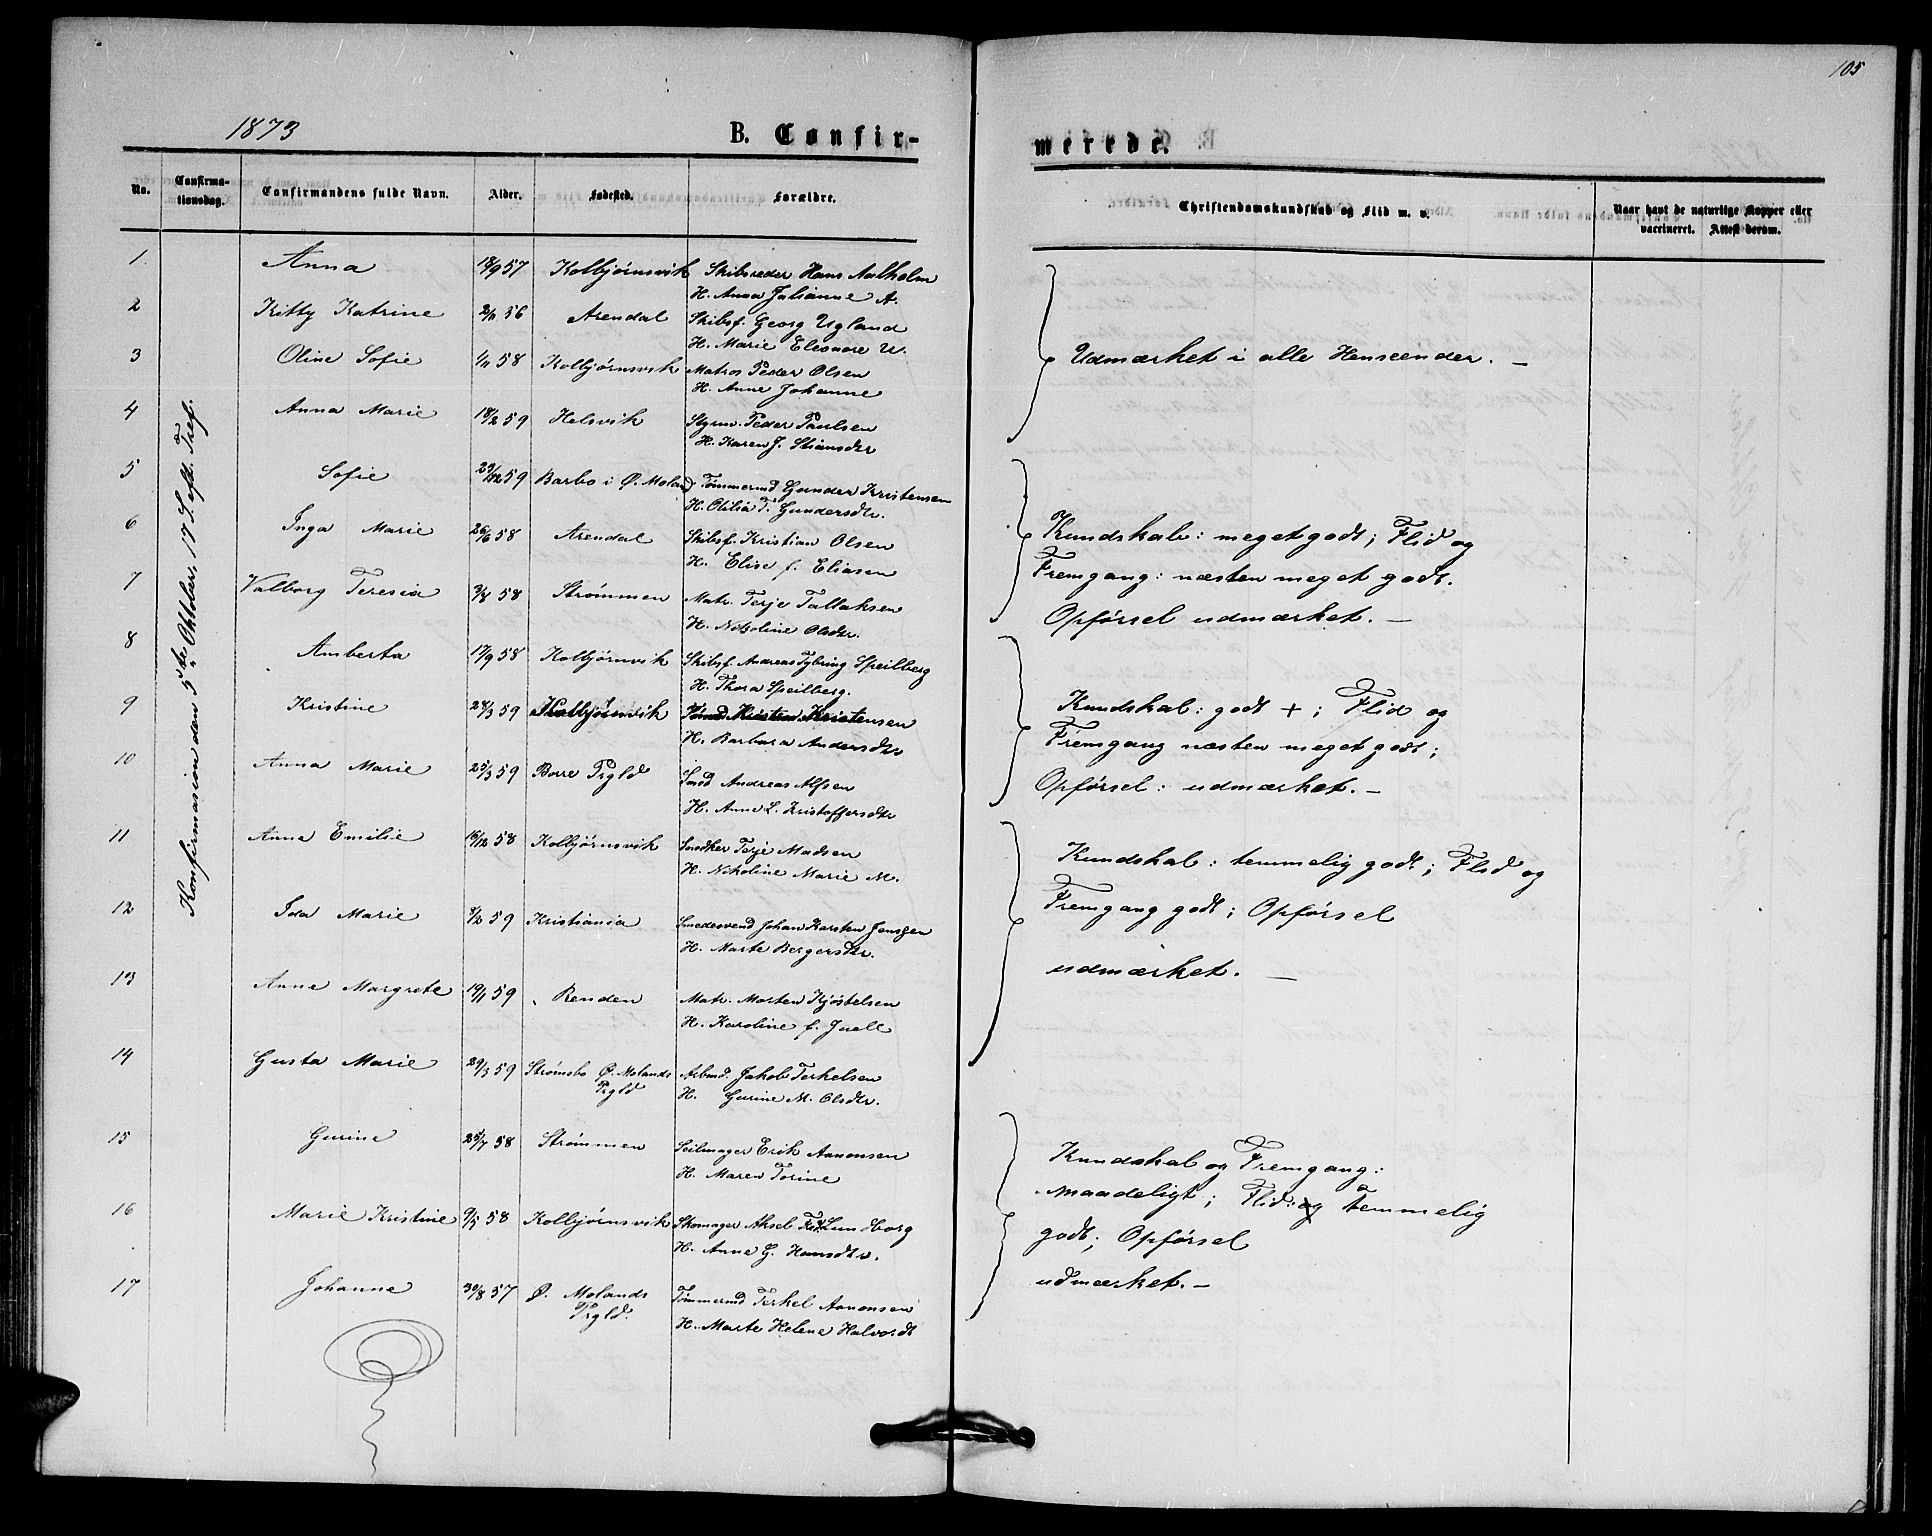 105
1873
B. Confir-
merede.
No.
Confirma-
tionsdag.
Confirmandens fulde Navn.
Alder.
Fødested.
Forældre.
Christendomskundskab og Flid m. v.
Naar havt de naturlige Kopper eller
vaccineret. Attest derom.
Konfirmasion den 5te Oktober, 17 S. eft. Tref.
1 Anna 18/9 57 Kolbjørnsvik Skibsreder Hans Aalholm
H. Anna Julianne A.
2 Kitty Katrine 2/11 56 Arendal Skibsf. Georg Ugland
H. Marie Eleonore U.
3 Oline Sofie 1/11 58 Kolbjørnsvik Matros Peder Olsen
H. Anne Johanne
4 Anna Marie 18/2 59 Helsvik Styrm. Peder Paulsen
H. Karen J. Stiansdtr
5 Sofie 59 Barbo i Ø. Moland Tømmermd Gunder Kristensen
H. Otilia T. Gundersdtr.
6 Inga Marie 26/6 58 Arendal Skibsf. Kristian Olsen
H. Elise f. Eliasen
7 Valborg Teresia 3/8 58 Strømmen Matr. Terje Tallaksen
H. Nikoline Olsdtr.
8 Amberta 17/9 58 Kolbjørnsvik Skibsf. Andreas Tybring Speilberg
H. Thora Speilberg.
9 Kristine 28/3 59 Kolbjørnsvik Kristensen
H. Barbara Andersdtr
10 Anna Marie 25/3 59 Borre Prgld Smed Andreas Alfsen
H. Anne L. Kristoffersdtr
11 Anna Emilie 16/12 58 Kolbjørnsvik Snedker Terje Madsen
H. Nikoline Marie M.
12 Ida Marie 8/2 59 Kristiania Smedesvend Johan Karsten Jensen
H. Marte Bergersdtr.
13 Anne Margrete 19/1 59 Renden Matr. Morten Kjøstelsen
H. Karoline f. Juell
14 Gusta Marie 29/3 59 Strømsbo Ø. Molands Arbmd. Jakob Terkelsen
Prgld H. Gurine M. Olsdtr.
15 Gurine 25/7 58 Strømmen Seilmager Erik Aanonsen
H. Maren Torine
16 Marie Kristine 9/5 58 Kolbjørnsvik Skomager Aksel Lundborg
H. Anne G. Hansdtr.
17 Johanne 30/8 57 Ø. Molands Tømmermd Terkel Aanonsen
Prgld. H. Marte Helene Halvordt
Udmærket i alle Henseender. —
Kundskab: meget godt; Flid og
Fremgang: næsten meget godt.
Opførsel udmærket. —
Kundskab: godt +; Flid og
Fremgang næsten meget godt;
Opførsel: udmærket. —
Kundskab: temmelig godt; Flid og
Fremgang godt; Opførsel
udmærket. —
Kundskab og Fremgang:
maadeligt; Flid: og temmelig
godt; Opførsel
udmærket. —